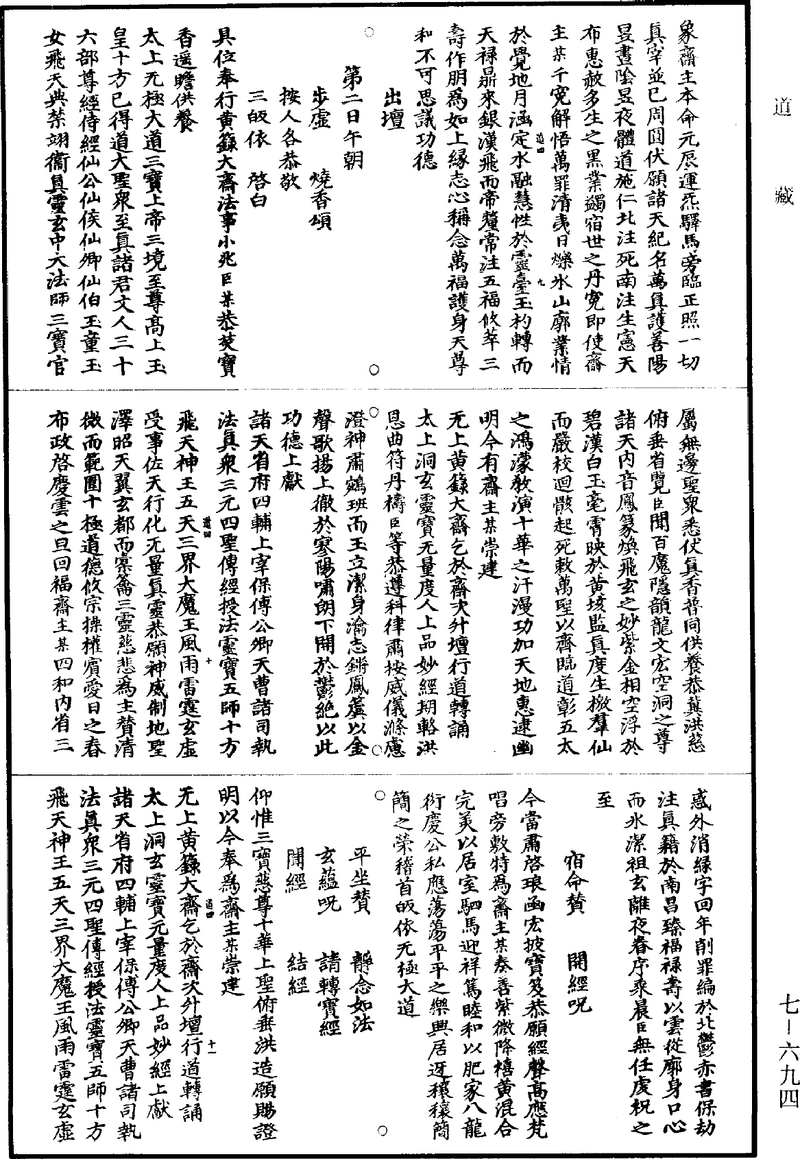 道藏
七-六九四
象齋主本命元辰運炁驛馬旁臨正照一切
真宰並已周圓伏願諸天紀名萬真護善陽
昱晝陰昱夜體道施仁北注死南注生憲天
布惠赦多生之黑業蠲宿世之丹冤即使齋
主某千冤解悟萬罪清夷日爍氷山廓業情
於覺地月涵定水融慧性於靈臺玉杓轉而
天禄鼎來銀漢飛而帝釐常注五福攸萃三
壽作朋爲如上緣志心稱念萬福護身天尊
和不可思議功德
出壇
第二日午朝
步虛 燒香頌
按人各恭敬
三皈依 啓白
具位奉行黃籙大齋法事小兆臣某恭焚寶
香遥瞻供養
太上无極大道三寶上帝三境至尊高上玉
皇十方已得道大聖衆至真諸君丈人三十
六部尊經侍經仙公仙侯仙卿仙伯玉童玉
女飛天典禁翊衞真靈玄中大法師三寶官
屬無邊聖衆悉伏真香普同供養恭冀洪慈
俯垂省覽臣聞百魔隱韻龍文宏空洞之尊
諸天內音鳳篆煥飛玄之妙紫金相空浮於
碧漢白玉毫霄映於黃垓監真度生檄羣仙
而嚴校迴骸起死敕萬聖以齊臨道彰五太
之鴻濛教演十華之汗漫功加天地惠逮幽
明今有齋主某崇建
无上黃籙大齋乞於齋次升壇行道轉誦
太上洞玄靈寶无量度人上品妙經期輅洪
恩曲符丹禱臣等恭遵科律肅按威儀滌慮
澄神肅鵷班而玉立潔身瀹志鏘鳳簴以金
聲歌揚上徹於寒陽嘯朗下開於鬱絶以此
功德上獻
諸天省府四輔上宰保傅公卿天曹諸司執
法真衆三元四聖傳經授法靈寶五師十方
飛天神王五天三界大魔王風雨雷霆玄虛
受事佐天行化无量真靈恭願神威制地聖
澤昭天翼玄都而橐籥三靈慈悲爲主贊清
微而範圍十極道德攸宗操權賓愛日之春
布政啓慶雲之旦回福齋主某四和內省三
惑外消緣字回年削罪編於北酆赤書保劫
注真籍於南昌臻福禄壽以雲從廓身口心
而氷潔祖玄離夜春序乘晨臣無任虔祝之
至
宿命贊 開經呪
今當肅啓琅函宏披寶笈恭願經聲高應梵
唱旁敷特爲齋主某奏善紫微降禧黃混合
完美以居室駟馬迎祥篤睦和以肥家八龍
衍慶公私應蕩蕩平平之樂興居迓穰穰簡
簡之榮稽首皈依无極大道
平坐贊 靜念如法
玄蘊呪 請轉寶經
開經 結經
仰惟三寶慈尊十華上聖俯垂洪造願賜證
明以今奉爲齋主某崇建
无上黃籙大齋乞於齋次升壇行道轉誦
太上洞玄靈寶无量度人上品妙經上獻
諸天省府四輔上宰保傅公卿天曹諸司執
法真衆三元四聖傳經授法靈寶五師十方
飛天神王五天三界大魔王風雨雷霆玄虛